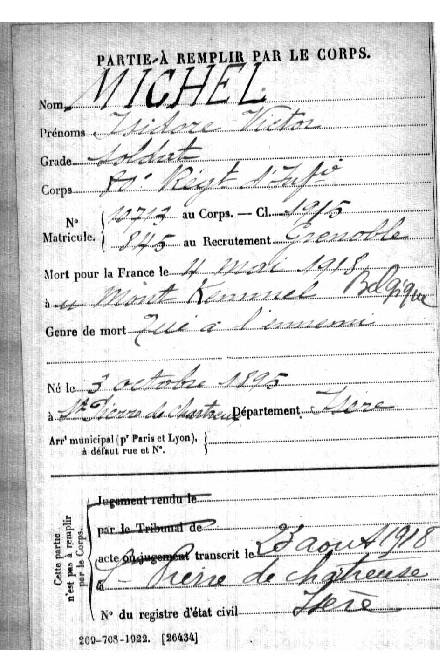 PARTIE À REMPLIR PAR LE CORPS.
Nom MICHEL
Prénoms Isidore Victor
Grade Soldat
Corps 80e Régt d'Infie
N° Matricule. { 10712 au Corps. — Cl. 1915
845 au Recrutement Grenoble
Mort pour la France le 4 mai 1918
à u Mont Kemmel Belgique
Genre de mort Tué à l'ennemi
Né le 3 octobre 1895
à St Pierre de Chartreuse Département Isère
Arrt municipal (pr Paris et Lyon),
à défaut rue et N°.
Cette partie
n'est pas à remplir
par le Corps.
Jugement rendu le
par le Tribunal de
acte ou jugement transcrit le 23 août 1918
à St Pierre de chatreuse
Isère
N° du registre d'état civil
209-708-1922. [26434]